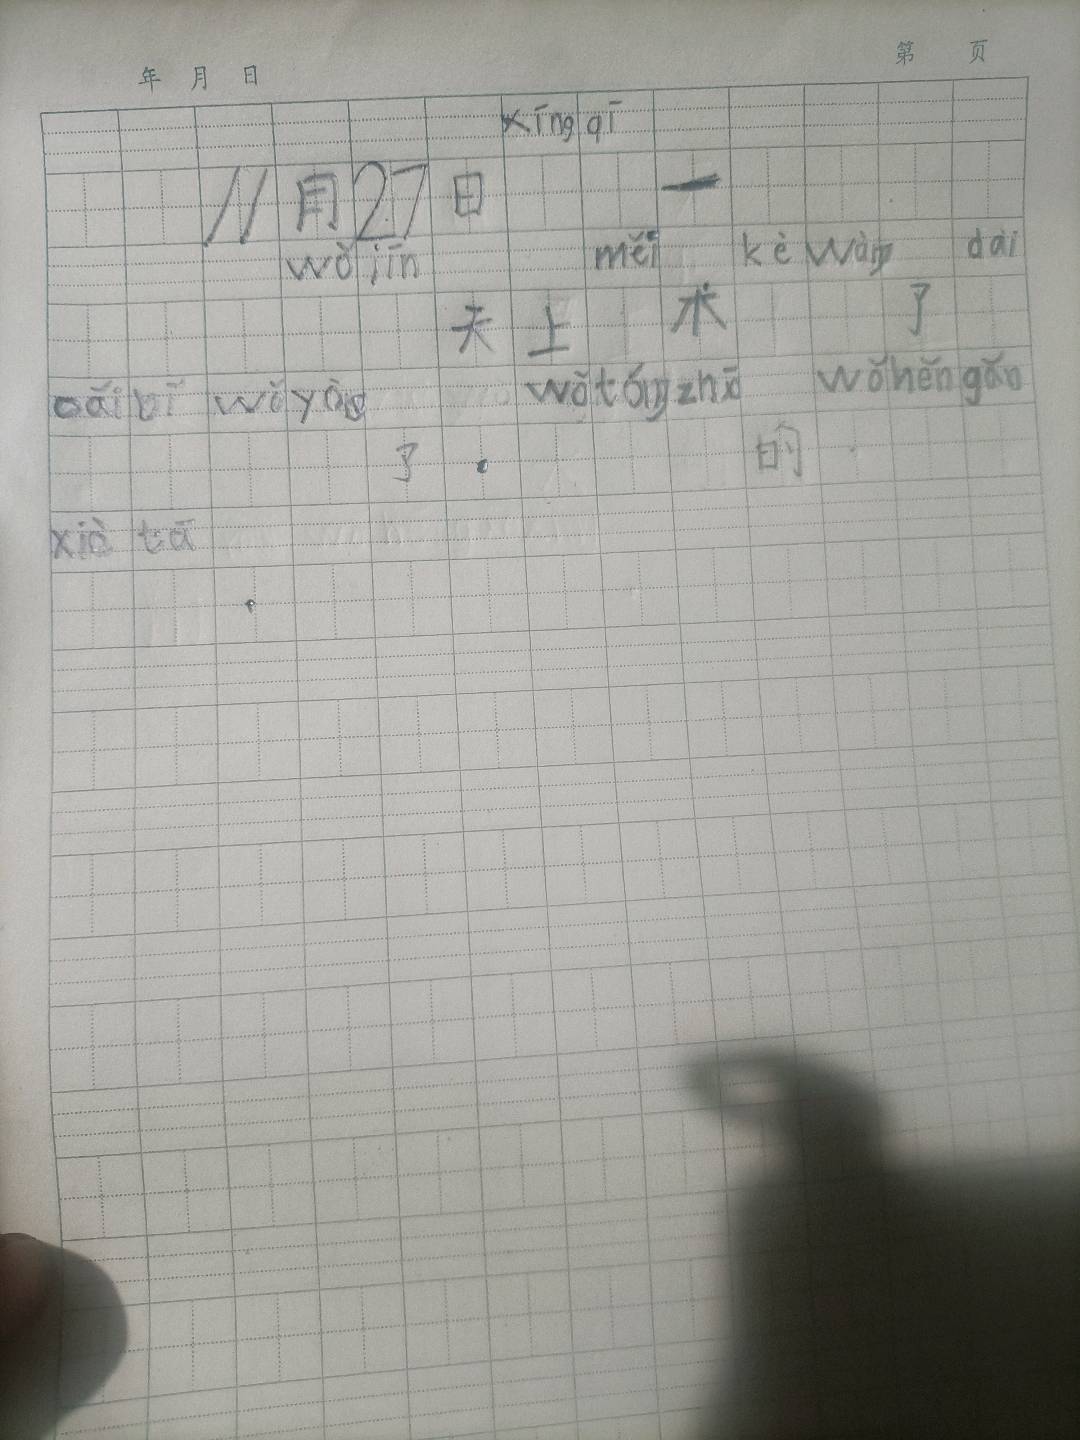 年 月 日 第 页
xīng qī
11月27日 一
wǒ jīn měi kè wàng dài
天上术了
cǎi bǐ wǒ yòng wǒ tóng zhuō wǒ hěn gǎn
了. 的
xiè tā
.